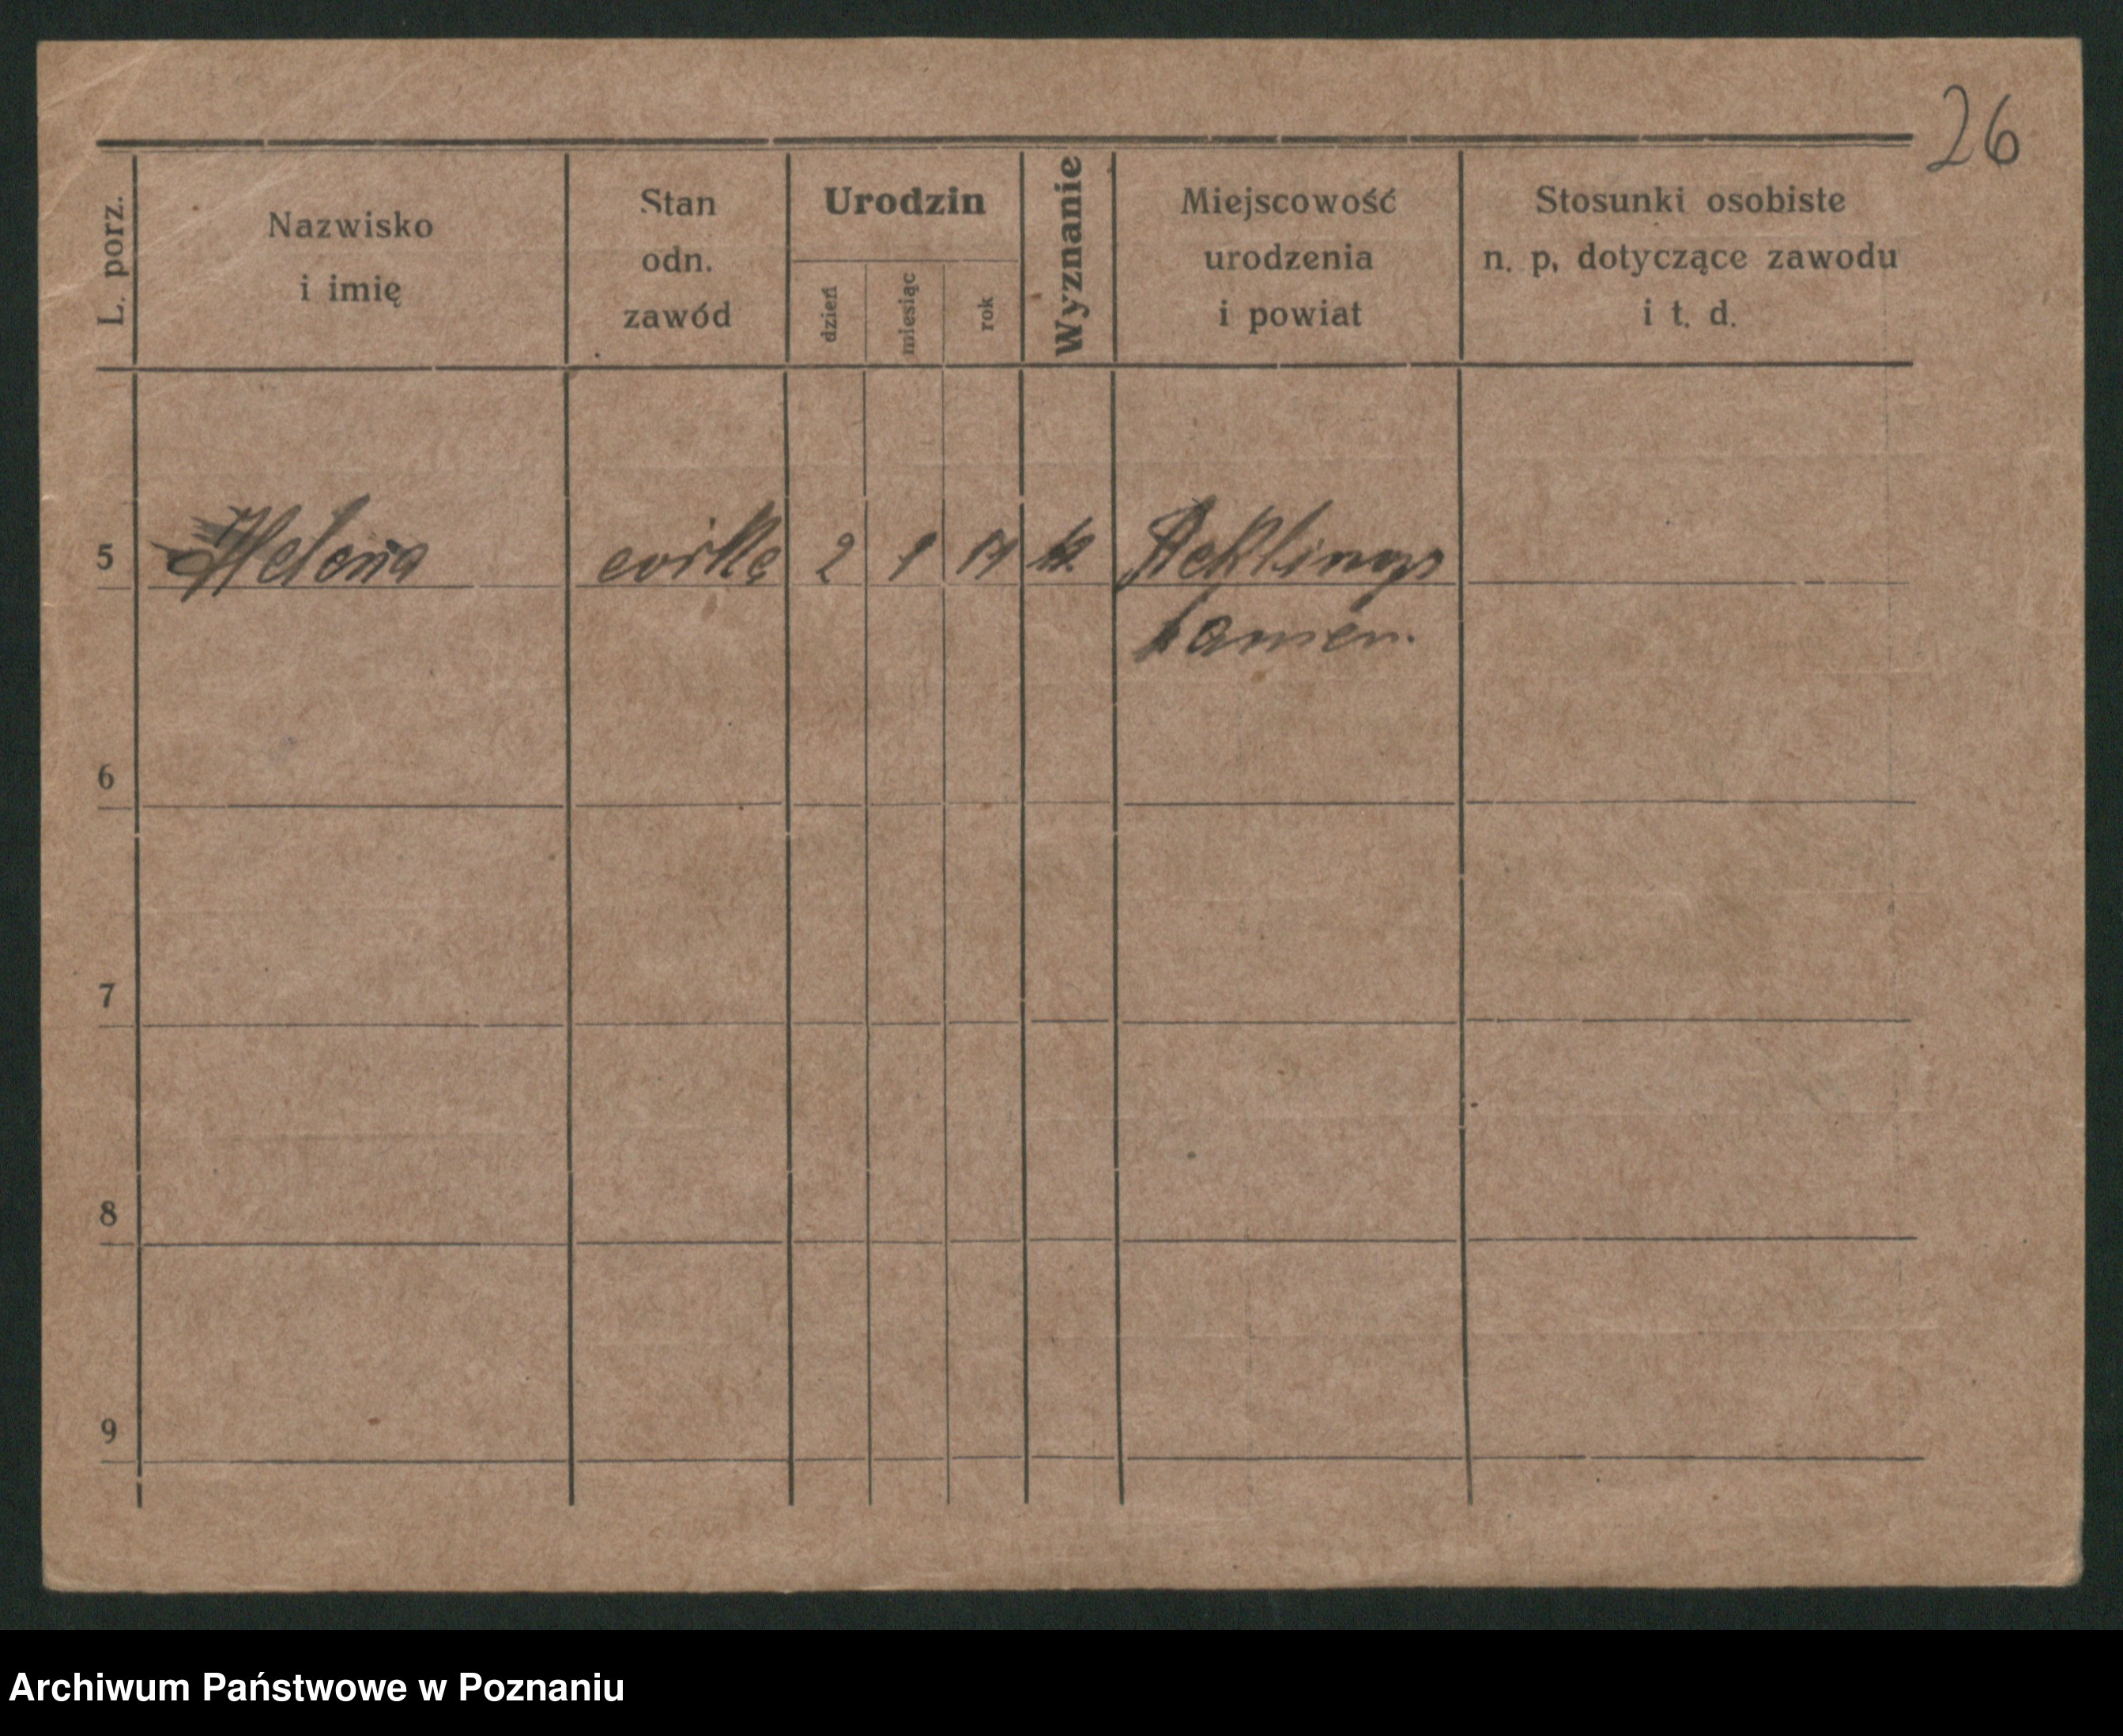 26
L. porz.
Nazwisko
i imię
Stan
odn.
zawód
Urodzin
dzień
miesiąc
rok
Wyznanie
Miejscowość
urodzenia
i powiat
Stosunki osobiste
n. p. dotyczące zawodu
i t. d.
5 Helena 2 1 Reklings
6
7
8
9
Archiwum Państwowe w Poznaniu